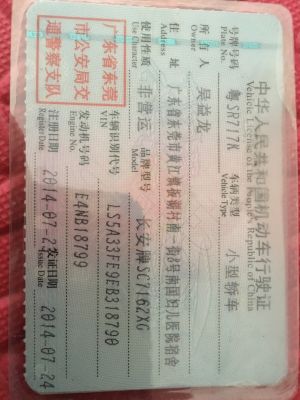 中华人民共和国机动车行驶证
Vehicle License of the People's Republic of China
号牌号码 粤SR717K 车辆类型 小型轿车
Plate No. Vehicle Type
所有人 吴益龙
Owner
住址 广东省东莞市黄江镇板湖村南一街8号南国妇儿医院宿舍
Address
使用性质 非营运 品牌型号 长安牌SC7162XG
Use Character Model
广东省东莞
市公安局交
通警察支队
车辆识别代号 LS5A33FE9EB318790
VIN
发动机号码 E4NB18799
Engine No.
注册日期 2014-07-2 发证日期 2014-07-24
Register Date Issue Date